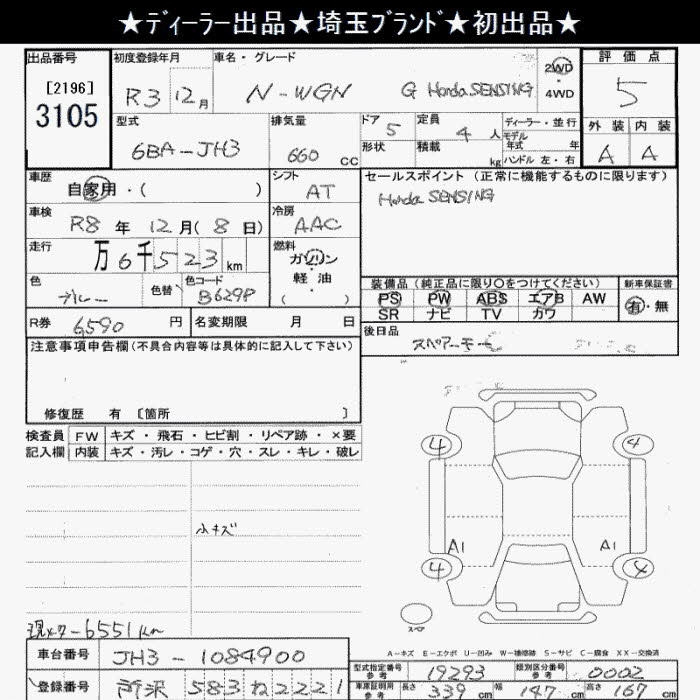 ★ディーラー出品★埼玉ブランド★初出品★
出品番号 初度登録年月 車名・グレード 2WD ・ 4WD 評価点
[2196] 3105 R3 12月 N-WGN G Honda SENSING 5
型式 排気量 ドア 定員 ディーラー・並行 外装 内装
6BA-JH3 660 CC 5 4人 モデル年式 年 A A
形状 積載 kg ハンドル 左・右
車歴 シフト セールスポイント (正常に機能するものに限ります)
自家用・( ) AT Honda SENSING
車検 R8年12月(8日) 冷房 AAC
走行 万6千523km 燃料 ガソリン・軽油 ( )
色 ブルー 色替 色コード B629P
装備品 (純正品に限り○をつけてください) 新車保証書
PS PW ABS エアB AW 有・無
SR ナビ TV カワ
R券 6590円 名変期限 月 日
後日品 スペアーキー
注意事項申告欄(不具合内容等は具体的に記入して下さい)
修復歴 有 [箇所 ]
検査員 FW キズ・飛石・ヒビ割・リペア跡・×要
記入欄 内装 キズ・汚レ・コゲ・穴・スレ・キレ・破レ
4 4
小キズ
A1 A1
4 4
スペア
現メタ-6551km
A-キズ E-エクボ U-凹み W-補修跡 S-サビ C-腐食 XX-交換済
車台番号 JH3-1084900
型式指定番号 参考 19293 類別区分番号 参考 0002
登録番号 所沢 583 ね 2221
車庫証明用 参考 長さ 339cm 幅 147cm 高さ 167cm